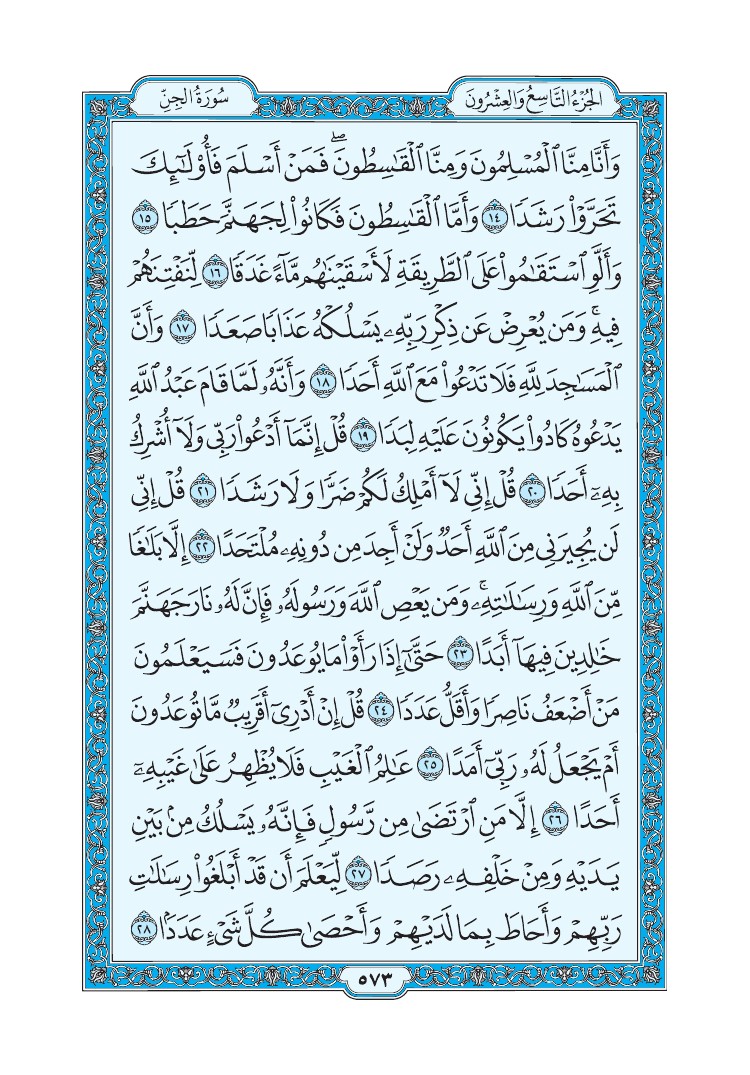 الجُزْءُ التَّاسِعُ وَالعِشْرُونَ
سُورَةُ الجِنِّ
وَأَنَّا مِنَّا ٱلْمُسْلِمُونَ وَمِنَّا ٱلْقَٰسِطُونَۖ فَمَنْ أَسْلَمَ فَأُو۟لَٰٓئِكَ
تَحَرَّوْا۟ رَشَدًا ١٤ وَأَمَّا ٱلْقَٰسِطُونَ فَكَانُوا۟ لِجَهَنَّمَ حَطَبًا ١٥
وَأَلَّوِ ٱسْتَقَٰمُوا۟ عَلَى ٱلطَّرِيقَةِ لَأَسْقَيْنَٰهُم مَّآءً غَدَقًا ١٦ لِّنَفْتِنَهُمْ
فِيهِۚ وَمَن يُعْرِضْ عَن ذِكْرِ رَبِّهِۦ يَسْلُكْهُ عَذَابًا صَعَدًا ١٧ وَأَنَّ
ٱلْمَسَٰجِدَ لِلَّهِ فَلَا تَدْعُوا۟ مَعَ ٱللَّهِ أَحَدًا ١٨ وَأَنَّهُۥ لَمَّا قَامَ عَبْدُ ٱللَّهِ
يَدْعُوهُ كَادُوا۟ يَكُونُونَ عَلَيْهِ لِبَدًا ١٩ قُلْ إِنَّمَآ أَدْعُوا۟ رَبِّى وَلَآ أُشْرِكُ
بِهِۦٓ أَحَدًا ٢٠ قُلْ إِنِّى لَآ أَمْلِكُ لَكُمْ ضَرًّا وَلَا رَشَدًا ٢١ قُلْ إِنِّى
لَن يُجِيرَنِى مِنَ ٱللَّهِ أَحَدٌ وَلَنْ أَجِدَ مِن دُونِهِۦ مُلْتَحَدًا ٢٢ إِلَّا بَلَٰغًا
مِّنَ ٱللَّهِ وَرِسَٰلَٰتِهِۦۚ وَمَن يَعْصِ ٱللَّهَ وَرَسُولَهُۥ فَإِنَّ لَهُۥ نَارَ جَهَنَّمَ
خَٰلِدِينَ فِيهَآ أَبَدًا ٢٣ حَتَّىٰٓ إِذَا رَأَوْا۟ مَا يُوعَدُونَ فَسَيَعْلَمُونَ
مَنْ أَضْعَفُ نَاصِرًا وَأَقَلُّ عَدَدًا ٢٤ قُلْ إِنْ أَدْرِىٓ أَقَرِيبٌ مَّا تُوعَدُونَ
أَمْ يَجْعَلُ لَهُۥ رَبِّىٓ أَمَدًا ٢٥ عَٰلِمُ ٱلْغَيْبِ فَلَا يُظْهِرُ عَلَىٰ غَيْبِهِۦٓ
أَحَدًا ٢٦ إِلَّا مَنِ ٱرْتَضَىٰ مِن رَّسُولٍ فَإِنَّهُۥ يَسْلُكُ مِنۢ بَيْنِ
يَدَيْهِ وَمِنْ خَلْفِهِۦ رَصَدًا ٢٧ لِّيَعْلَمَ أَن قَدْ أَبْلَغُوا۟ رِسَٰلَٰتِ
رَبِّهِمْ وَأَحَاطَ بِمَا لَدَيْهِمْ وَأَحْصَىٰ كُلَّ شَىْءٍ عَدَدًۢا ٢٨
٥٧٣